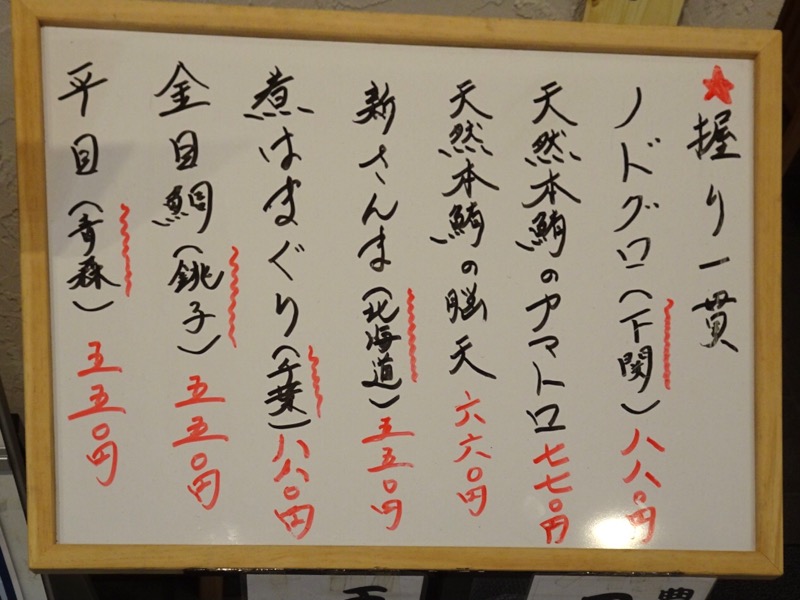 ★握り一貫
ノドグロ(下関)八八〇円
天然本鮪のカマトロ七七〇円
天然本鮪の脳天六六〇円
新さんま(北海道)五五〇円
煮はまぐり(千葉)八八〇円
金目鯛(銚子)五五〇円
平目(青森)五五〇円